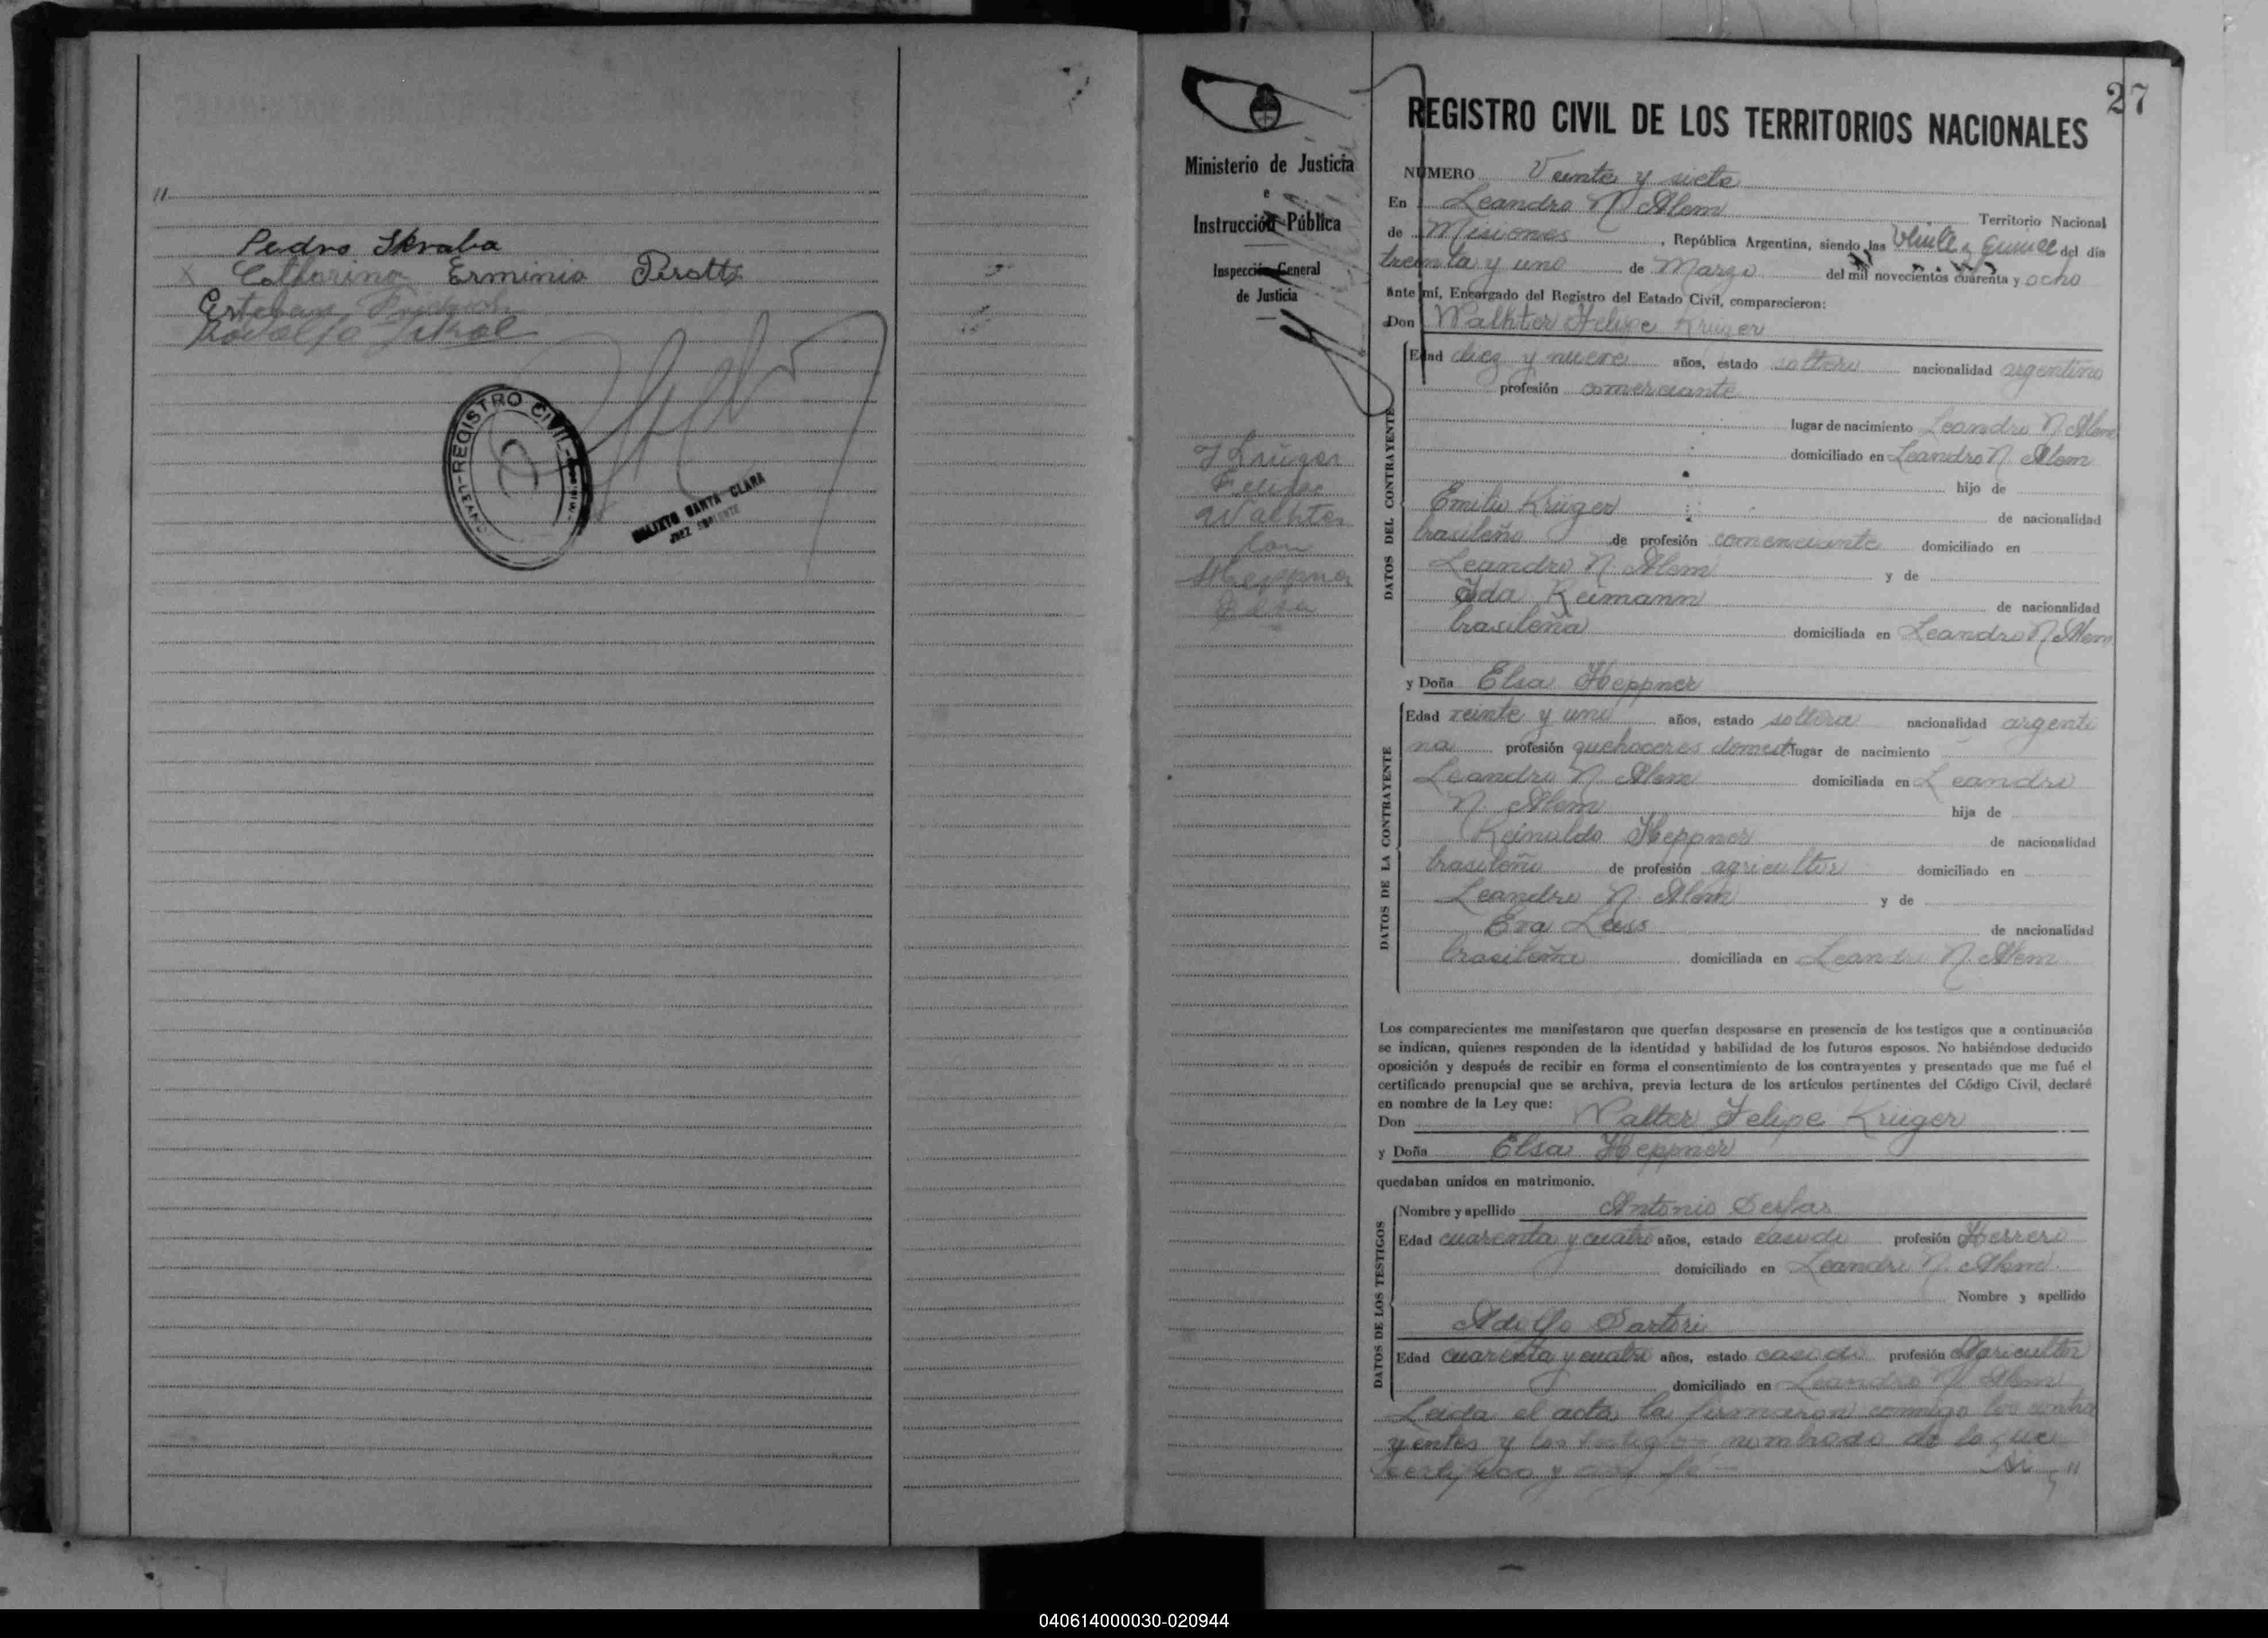 "
Pedro Skraba
X Catharina Erminia Perotti
Esteban
Rodolfo
REGISTRO CIVIL - LEAND
GUALETO SANTA CLARA
JUEZ SUPLENTE
27
Ministerio de Justicia
e
Instrucción Pública
Inspección General
de Justicia
Krüger
Felipe
Walhter
con
Heppner
Elsa
REGISTRO CIVIL DE LOS TERRITORIOS NACIONALES
NÚMERO Veinte y siete
En Leandro N. Alem Territorio Nacional
de Misiones, República Argentina, siendo las del día
treinta y uno de Marzo del mil novecientos cuarenta y ocho
ante mí, Encargado del Registro del Estado Civil, comparecieron:
Don Walhter Felipe Krüger
DATOS DEL CONTRAYENTE
Edad diez y nueve años, estado soltero nacionalidad argentino
profesión comerciante
lugar de nacimiento Leandro N. Alem
domiciliado en Leandro N. Alem
hijo de
Emilio Krüger de nacionalidad
brasileño de profesión comerciante domiciliado en
Leandro N. Alem y de
Ida Reimann de nacionalidad
brasileña domiciliada en Leandro N. Alem
y Doña Elsa Heppner
DATOS DE LA CONTRAYENTE
Edad veinte y uno años, estado soltera nacionalidad argenti
na profesión quehaceres domest lugar de nacimiento
Leandro N. Alem domiciliada en Leandro
N. Alem hija de
Reinaldo Heppner de nacionalidad
brasileño de profesión agricultor domiciliado en
Leandro N. Alem y de
Eva Lass de nacionalidad
brasileña domiciliada en Leandro N. Alem
Los comparecientes me manifestaron que querían desposarse en presencia de los testigos que a continuación
se indican, quienes responden de la identidad y habilidad de los futuros esposos. No habiéndose deducido
oposición y después de recibir en forma el consentimiento de los contrayentes y presentado que me fué el
certificado prenupcial que se archiva, previa lectura de los artículos pertinentes del Código Civil, declaré
en nombre de la Ley que:
Don Walter Felipe Krüger
y Doña Elsa Heppner
quedaban unidos en matrimonio.
DATOS DE LOS TESTIGOS
Nombre y apellido Antonio
Edad cuarenta y cuatro años, estado casado profesión Herrero
domiciliado en Leandro N. Alem
Nombre y apellido
Adolfo Sartori
Edad cuarenta y cuatro años, estado casado profesión Agricultor
domiciliado en Leandro N. Alem
Leida el acta, la firmaron conmigo los contra
yentes y los testigos nombrado de lo que
certifico y doy fé "
040614000030-020944